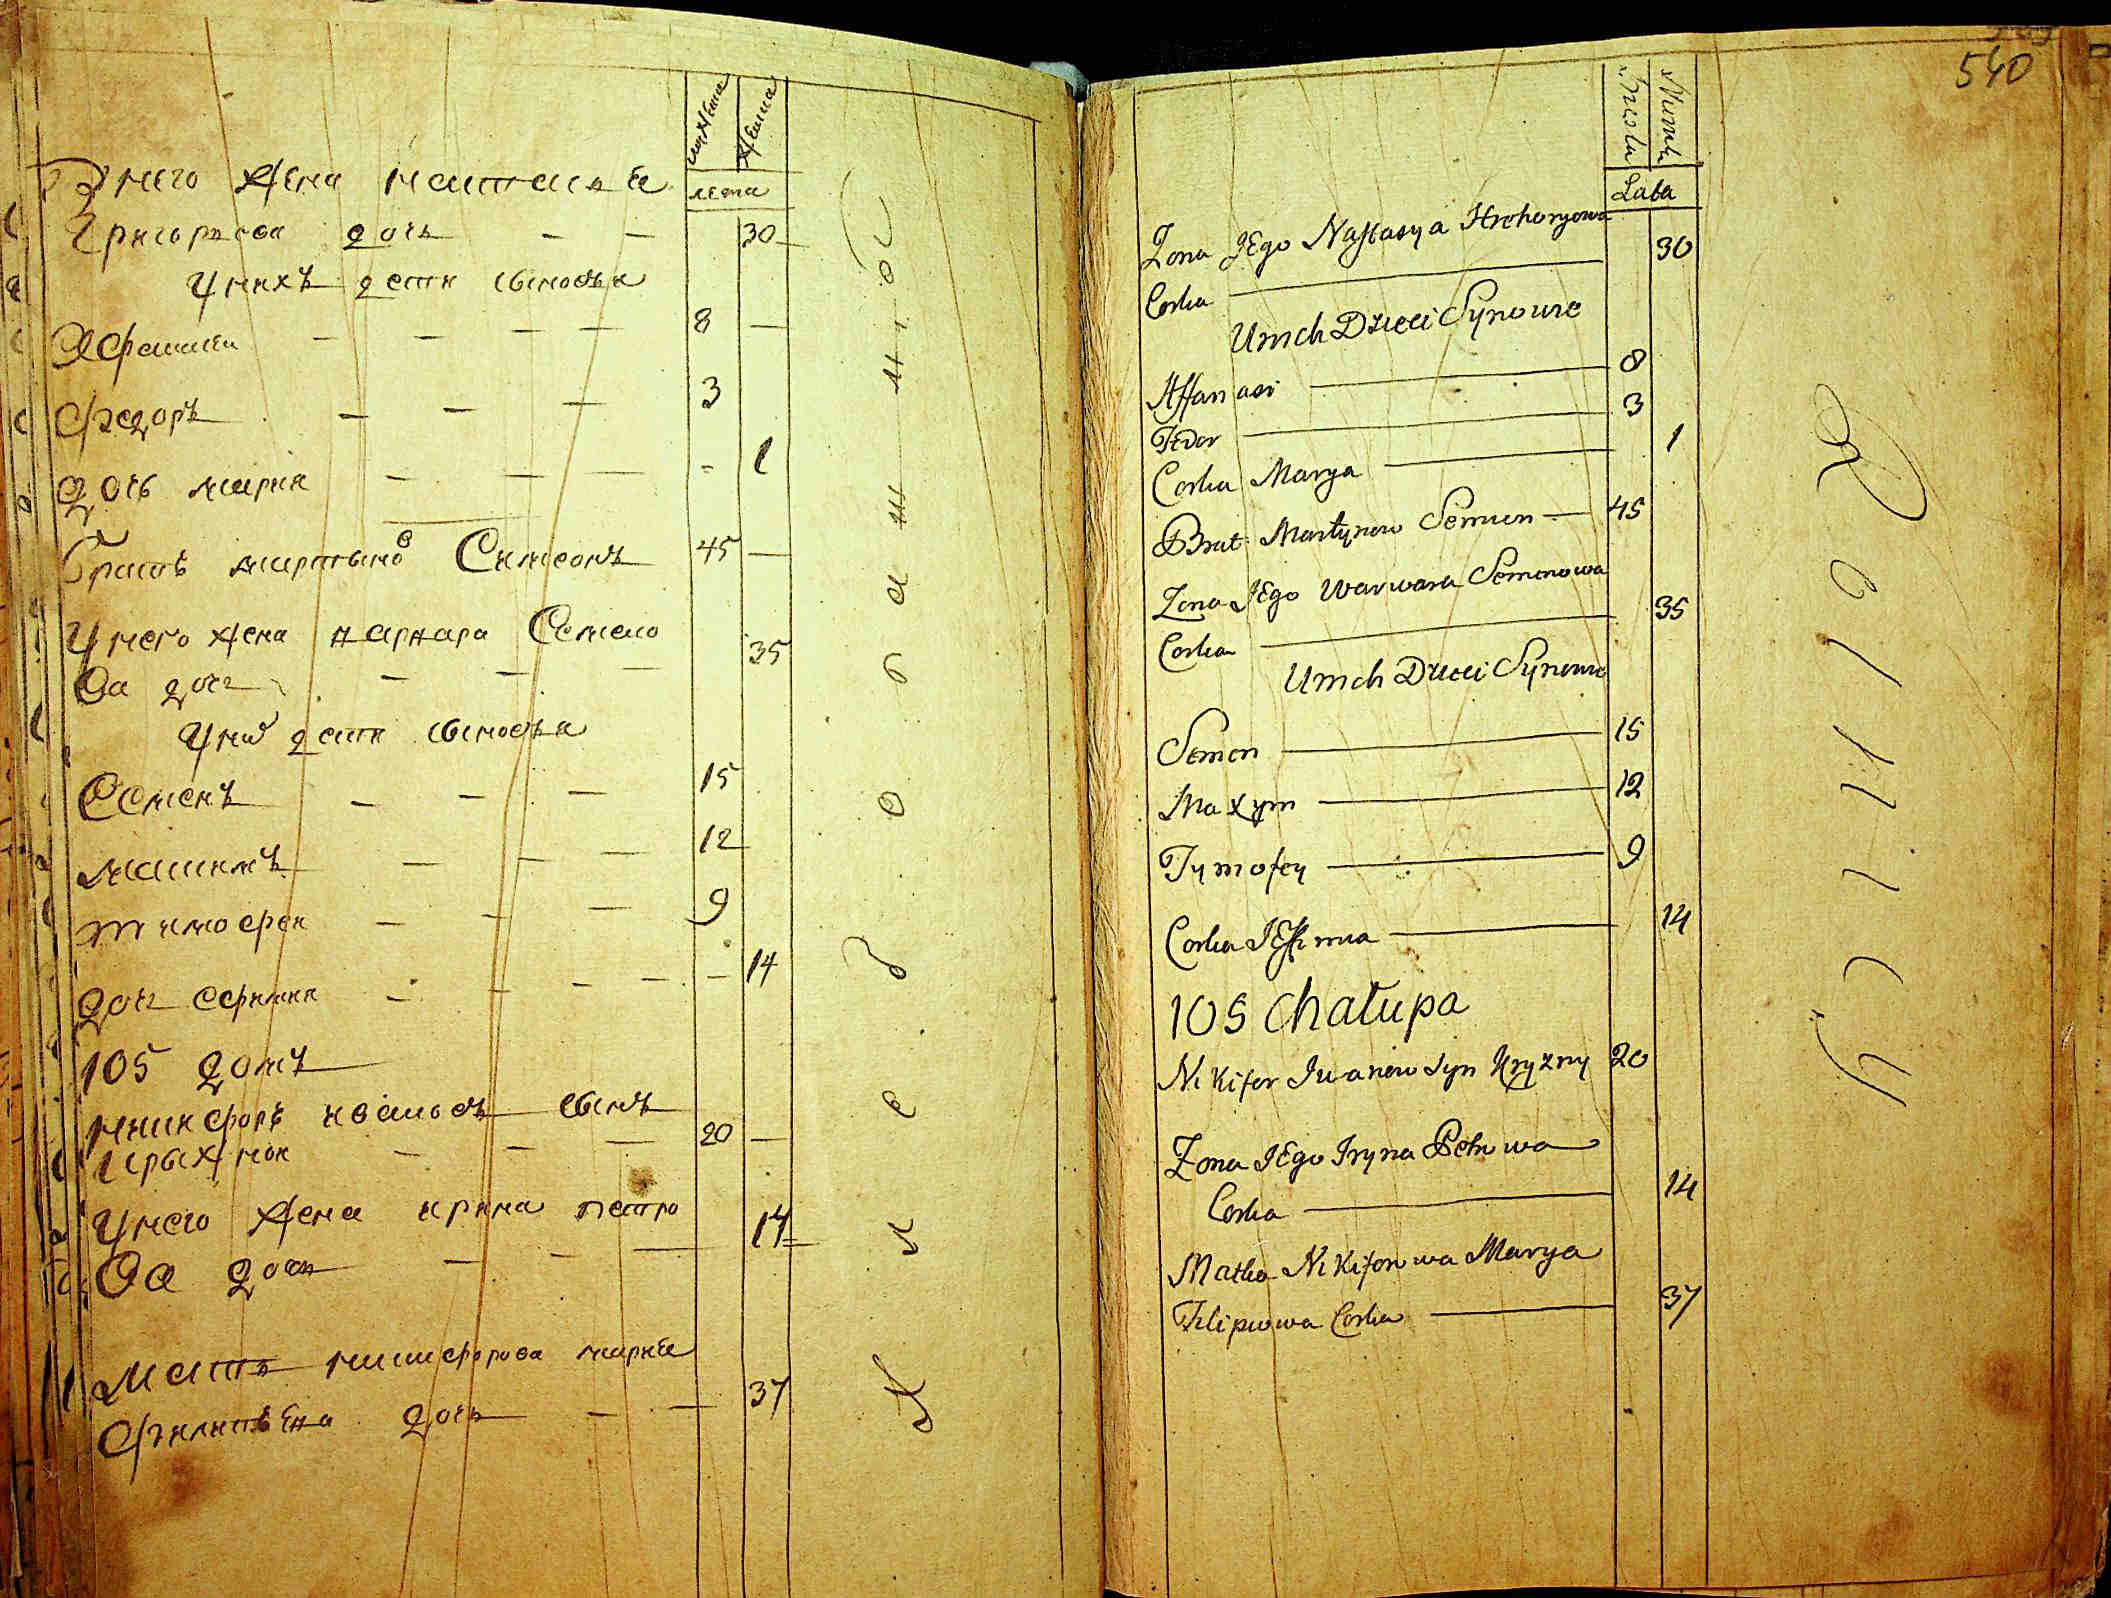 мужеска
женска
лета
У него жена настасия
Григорьева дочь 30
У нихъ дети сыновья
Афанасеи 8
Федоръ 3
Дочь мария 1
братъ мартынов Симеонъ 45
У него жена варвара Семено
ва дочь 35
У них дети сыновья
Семенъ 15
максимъ 12
тимофеи 9
Дочь ефимия 14
105 домъ
никифоръ ивановъ сынъ 20
У него жена ирина петро
ва дочь 14
Мать никифорова мария 37
Филипьева дочь
540
Lata
Zona JEgo Nastasya Hrohoryowa 30
Corka
U nich Dzieci Synowie
Affanasi 8
Fedor 3
Corka Marya 1
Brat Martynow Semion 45
Zona JEgo Warwara Semenowa 35
Corka
U nich Dzieci Synowie
Semen 15
Maxym 12
Tymofey 9
Corka JEffimia 14
105 Chałupa
Nikifor Iwanow Syn 20
Zona JEgo Iryna Petrowa
Corka 14
Matka Nikiforowa Marya
Filipowa Corka 37